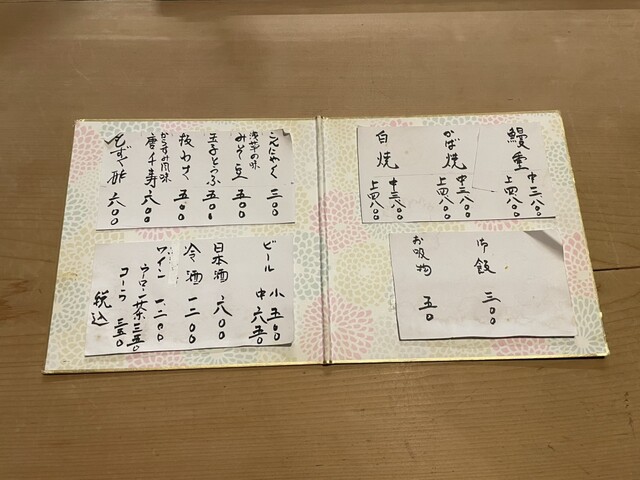 鰻重 中 三八〇〇
上 四八〇〇
かば焼 中 三八〇〇
上 四八〇〇
白焼 中 三八〇〇
上 四八〇〇
御飯 三〇〇
お吸物 五〇
こんにゃく 三〇〇
浅草の味
みそ豆 五〇〇
玉子とうふ 五〇〇
板わさ 五〇〇
からすみ風味
唐千寿 六〇〇
もずく酢 六〇〇
ビール 小 五〇〇
中 六五〇
日本酒 六〇〇
冷酒 一二〇〇
ワイン 一二〇〇
ウーロン茶 三五〇
コーラ 三五〇
税込